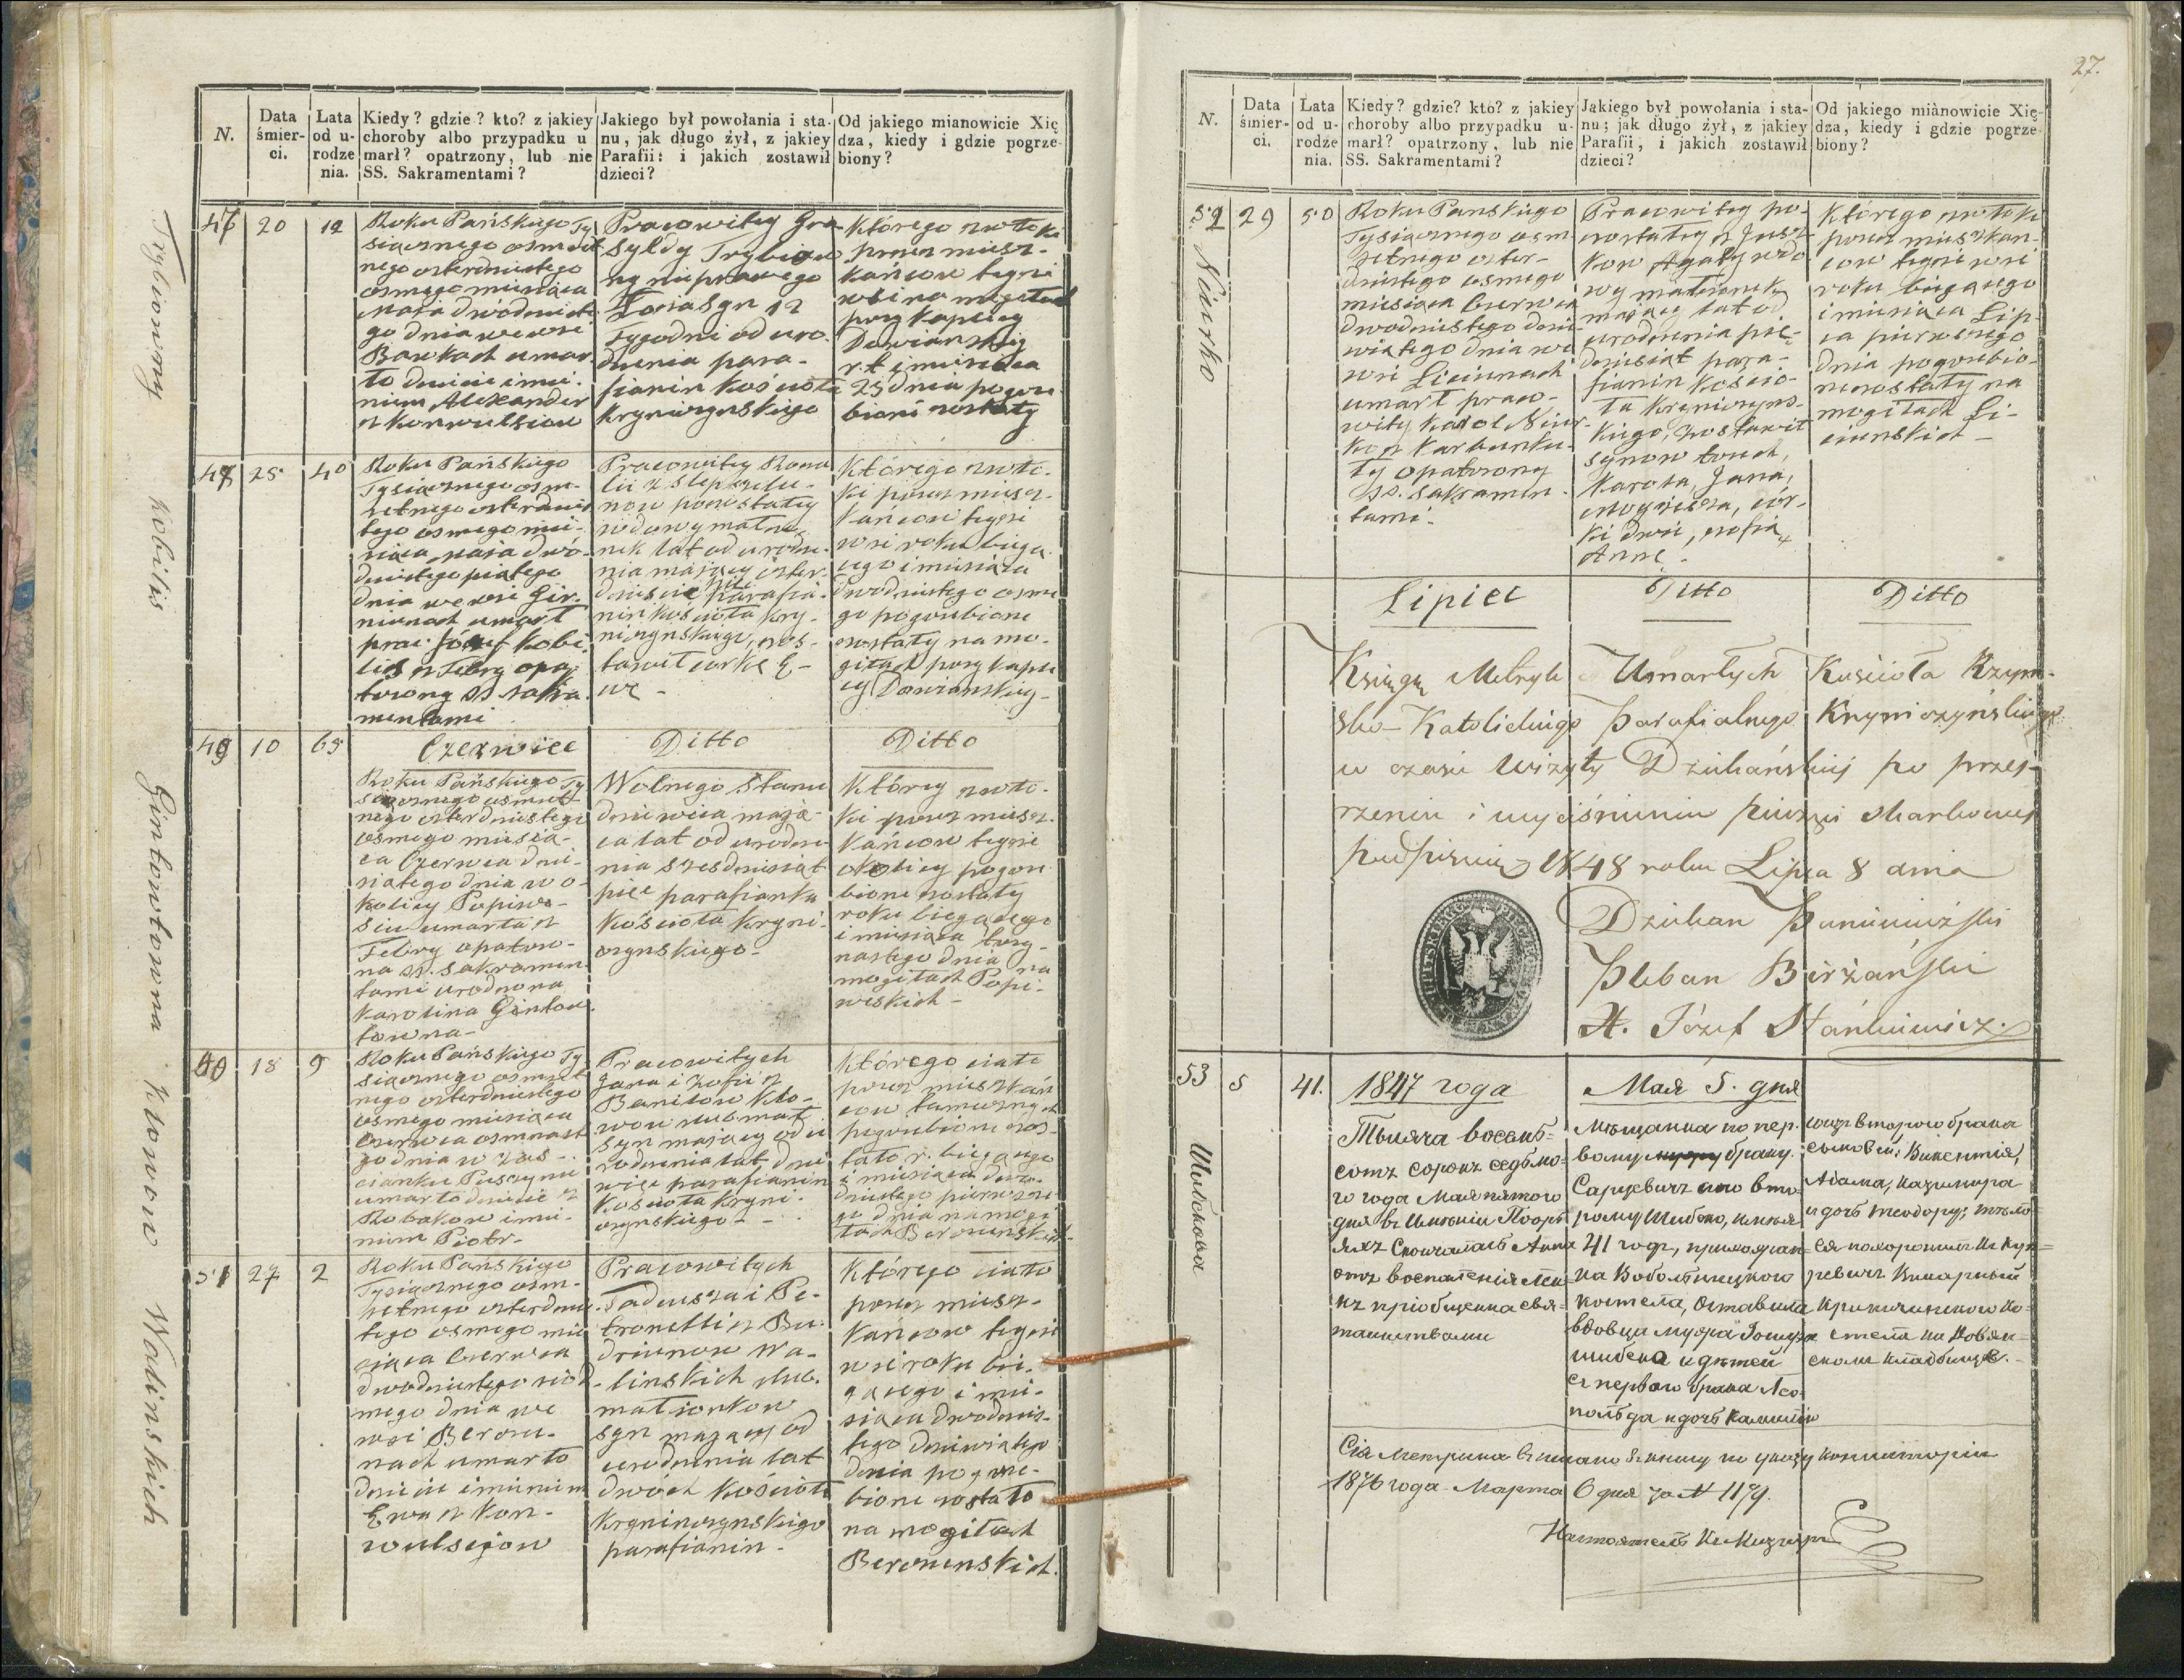 N.
Data śmier-
ci.
Lata
od u-
rodze
nia.
Kiedy? gdzie? kto? z jakiey
choroby albo przypadku u
marł? opatrzony, lub nie
SS. Sakramentami?
Jakiego był powołania i sta-
nu, jak długo żył, z jakiey
Parafii: i jakich zostawił
dzieci?
Od jakiego mianowicie Xię
dza, kiedy i gdzie pogrze-
biony?
Trybiowny
20
12
Roku Pańskiego Ty
siącznego osmset
nego czterdziestego
osmego miesiąca
Maja dwódzieste
go dnia we wsi
umar
ło dziecie imie-
niem Alexander
z konwulsiow
Pracowitey Gra
syldy
nieprawego
syn 12
Tygodni od uro
dzenia para-
fianin kościoła
kryniczynskiego
Którego zwłoki
przez miesz-
kańcow tegoż
wsi na mogiłach
przy kaplicy
Dowianskiey
r. t. i miesiąca
23 dnia pogrze
bioné zostały
Kobilis
25
40
Roku Pańskiego
Tysiącznego osm-
setnego czterdzies
tego osmego mie-
siąca maja dwó-
dziestego piątego
dnia we wsi Gir-
niunach umarł
prac. Józef Kobi
lis z Febry opa-
trzony SS. sakra
mentami
Pracowitey
now pozostałey
wdowy małżo-
nek lat od urodze-
nia mający czter-
dzieści parafia-
nin kościoła kry-
niczynskiego, zos-
tawił corkę E-
wę -
Którego zwło-
ki przez miesz-
kańcow tegoż
wsi roku bieżą
cego i miesiąca
dwodziestego osme
go pogrzebione
zostały na mo-
giłach przy kapli
cy Dowianskiey -
Gintowtowna
49
10
65
Czerwiec
Ditto
Ditto
Roku Pańskiego Ty
siącznego osmset
nego czterdziestego
osmego miesią-
ca Czerwca dzie-
siątego dnia w o-
kolicy Popiwe-
siu umarła z
Febry opatrzo-
na SS. sakramen
tami urodzona
Karolina Gintow
towna -
Wolnego stanu
dziewica mają-
ca lat od urodze
nia szesdziesiąt
pięć parafianka
kościoła kryni-
czynskiego -
Którey zwło-
ki przez miesz-
kańcow tegoż
okolicy pogrze
bione zostały
roku bieżącego
i miesiąca trzy-
nastego dnia na
mogiłach Popi-
weskich -
Klowow
18
9
Roku Pańskiego Ty
siącznego osmset
nego czterdziestego
osmego miesiąca
Czerwca osmnaste
go dnia w zas-
cianku Puszynie
umarło dziecie z
Robakow imie-
niem Piotr -
Pracowitych
Jana i Zofii z
Banisow Kło-
wow slub małż
syn mający od u
rodzenia lat dzie
więć parafianin
kościoła kryni-
czynskiego -
Którego ciało
przez mieszkań
cow tamecznych
pogrzebione zos-
tało r. bieżącego
i miesiąca dwu-
dziestego pierwsze
go dnia na mogi
łach Beronenskich
Walinskich
51
27
2
Roku Pańskiego
Tysiącznego osm-
setnego czterdzies
tego osmego mie
siąca Czerwca
dwodziestego siód
mego dnia we
wsi Beronu-
nach umarło
dziecie imieniem
Ewa z kon-
wulsijow
Pracowitych
Tadeusza i Pe-
tronelli z Bu-
driunow Wa-
linskich slub.
małżonkow
syn mający od
urodzenia lat
dwóch kościoła
krynicynskiego
parafianin -
Którego ciało
przez miesz-
kańcow tegoż
wsi roku bie-
żącego i mie-
siąca dwodzies-
tego dziewiątego
dnia pogrze-
bione zostało
na mogiłach
Beronenskich.
27.
N.
Data
śmier-
ci.
Lata
od u-
rodze
nia.
Kiedy? gdzie? kto? z jakiey
choroby albo przypadku u-
marł? opatrzony, lub nie
SS. Sakramentami?
Jakiego był powołania i sta-
nu; jak długo żył, z jakiey
Parafii, i jakich zostawił
dzieci?
Od jakiego miànowicie Xię-
dza, kiedy i gdzie pogrze-
biony?
Niurko
52
29
50
Roku Panskiego
Tysiącznego osm
setnego czter-
dziestego osmego
miesiąca Czerwca
dwodziestego dzie-
wiątego dnia we
wsi Liciunach
umarł praco-
wity Karol Niur-
ko z karbunku-
ły opatrzony
SS. sakramen-
tami -
Pracowitey po-
zostałey z Jusz
kow Agaty wdo
wy małżonek
mający lat od
urodzenia pię-
dziesiąt para-
fianin kościo-
ła kryniczyns-
kiego, zostawił
synow trzech,
Karola, Jana,
cór-
ki dwie, Zofią
Annę -
Którego zwłoki
przez mieszkan-
cow tegoż wsi
roku bieżącego
i miesiąca Lip-
ca pierwszego
dnia pogrzebio-
ne zostały na
mogiłach Li-
ciunskich -
Lipiec
Ditto
Ditto
Księgę Metryk Umarłych Kościoła Rzym-
sko-Katolickiego Parafialnego Kryniczyńskiego
w czasie Wizyty Dziekańskiej po przej-
rzeniu i wyciśnieniu pieczęci skarbowej
podpisuię 1848 roku Lipca 8 dnia
Dziekan Poniewieżski
Pleban Birżański
X. Józef Stankiewicz.
Шибекова
53
5
41.
1847 года
Мая 5. дня
Тысяча восемь-
сотъ сорокъ седьмо-
го года Мая пятого
дня въ имѣнiи
скончалась Анна
отъ воспаленiя лег
кихъ прiобщенна свя-
таинствами
Мѣщанка по пер-
вому браку
Сарцевичъ а по вто-
рому Шибеко, имѣя
41 годъ, прихожан-
ка Воболтникскаго
костела, Оставила
вдовца мужа
Шибека и дѣтей
съ перваго брака Лео-
польда и дочь Камилiю
изъ втораго брака
сыновей: Викентiя,
Адама, Казимира
и дочь Теодору; тѣло
ея похоронилъ Кс. Куп-
ревичъ Викарный
Криничинскаго ко-
стела на Довян-
скомъ кладбищѣ. -
Сiя метрика вписана въ книгу по указу Консисторiи
1876 года Марта 6 дня за № 1179.
Настоятель Кс.